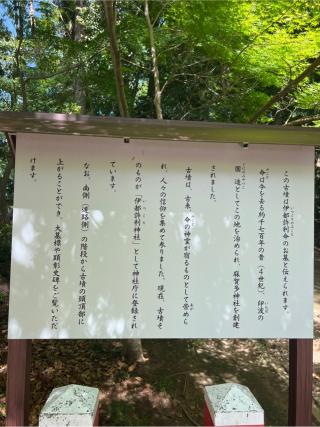 この古墳は伊都許利命のお墓と伝えられます。
命は今を去る約千七百年の昔（四世紀）、印波の
国造としてこの地を治められ、麻賀多神社を創建
されました。
古墳は、古来、命の神霊が宿るものとして崇めら
れ、人々の信仰を集めて参りました。現在、古墳そ
のものが「伊都許利神社」として神社庁に登録され
ています。
なお、南側（道路側）の階段から古墳の頭頂部に
上がることができ、大墓標や顕彰史碑をご覧いただ
けます。